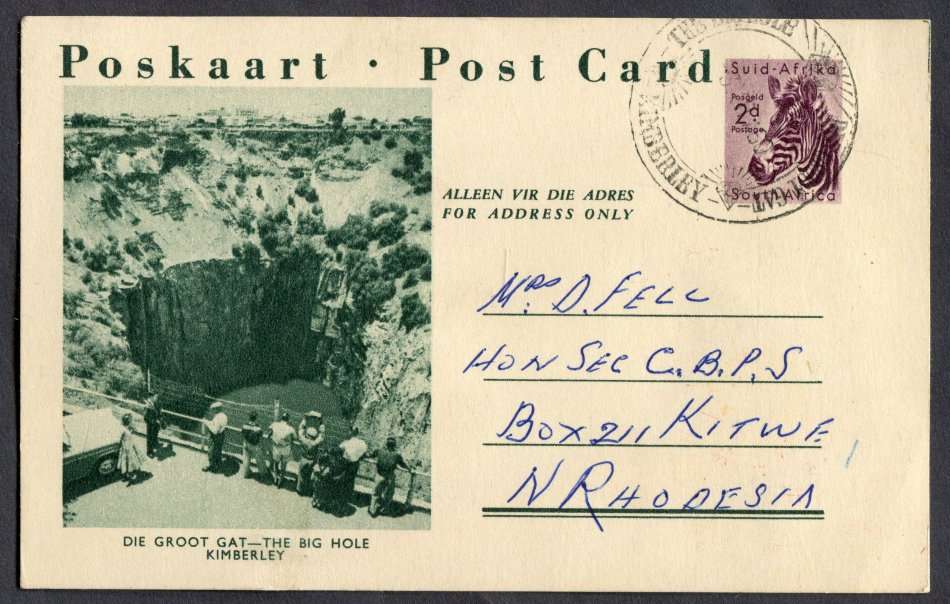 Poskaart · Post Card
THE BIG HOLE
KIMBERLEY
GAT
Suid-Afrika
Posgeld
2d
Postage
South Africa
ALLEEN VIR DIE ADRES
FOR ADDRESS ONLY
Mrs D. FELL
HON SEC C.B.P.S
BOX 211 KITWE
N RHODESIA
DIE GROOT GAT—THE BIG HOLE
KIMBERLEY